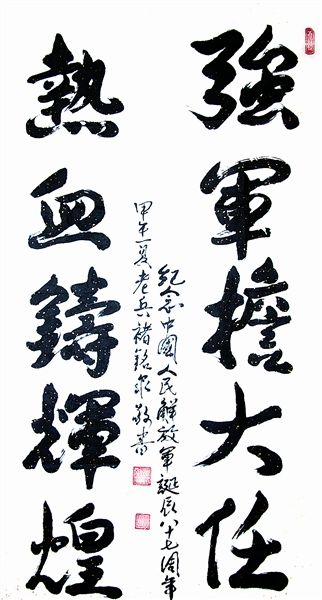 強軍擔大任
熱血鑄輝煌
紀念中國人民解放軍誕辰八十七周年
甲午夏老兵褚銘泉敬書